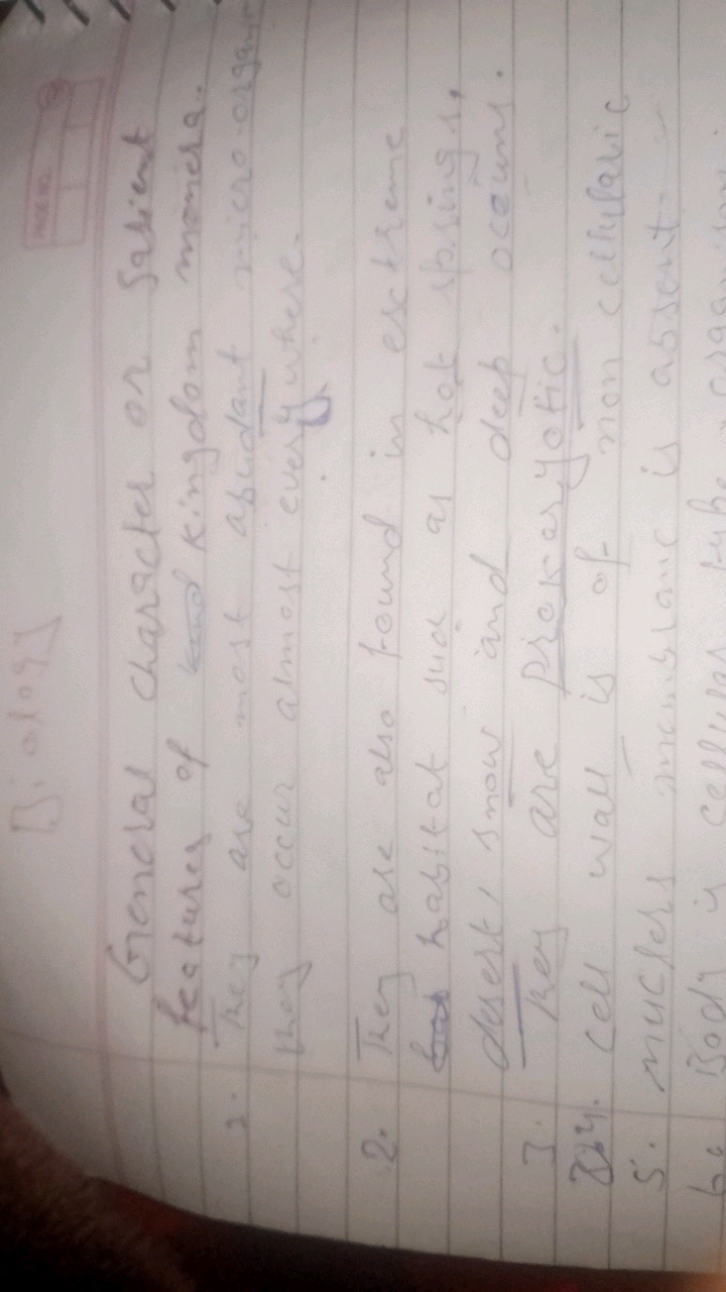 Biology
General character or Salient
features of kingdom monera.
1. They are most abudant micro-organ
they occur almost everywhere.
2. They are also found in extreme
habitat such as hot springs,
desert, snow and deep oceans.
3. They are prokaryotic.
4. cell wall is of non cellularic
5. nuclers membrane is absent
6. Body is cellular